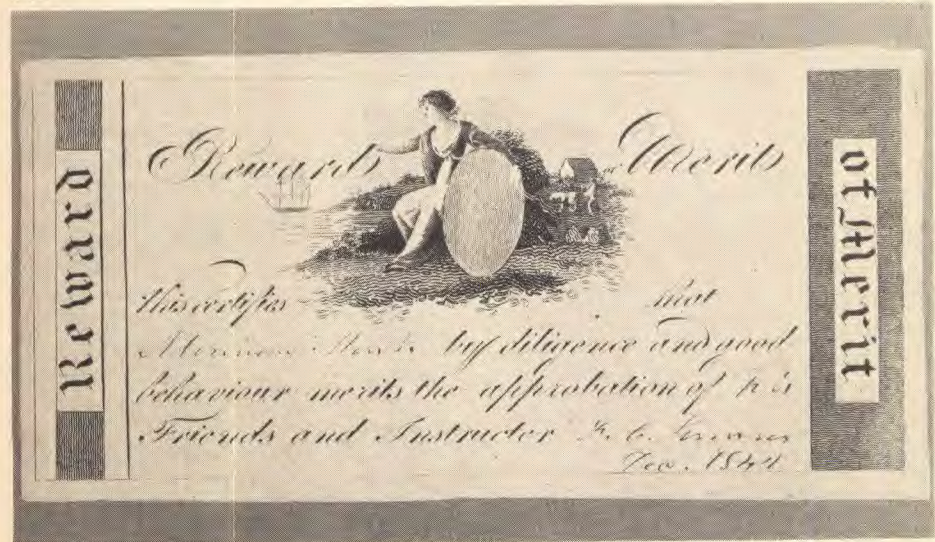 Reward
Reward of Merit
this certifies that
by diligence and good
behaviour merits the approbation of his
Friends and Instructor
1844
of Merit